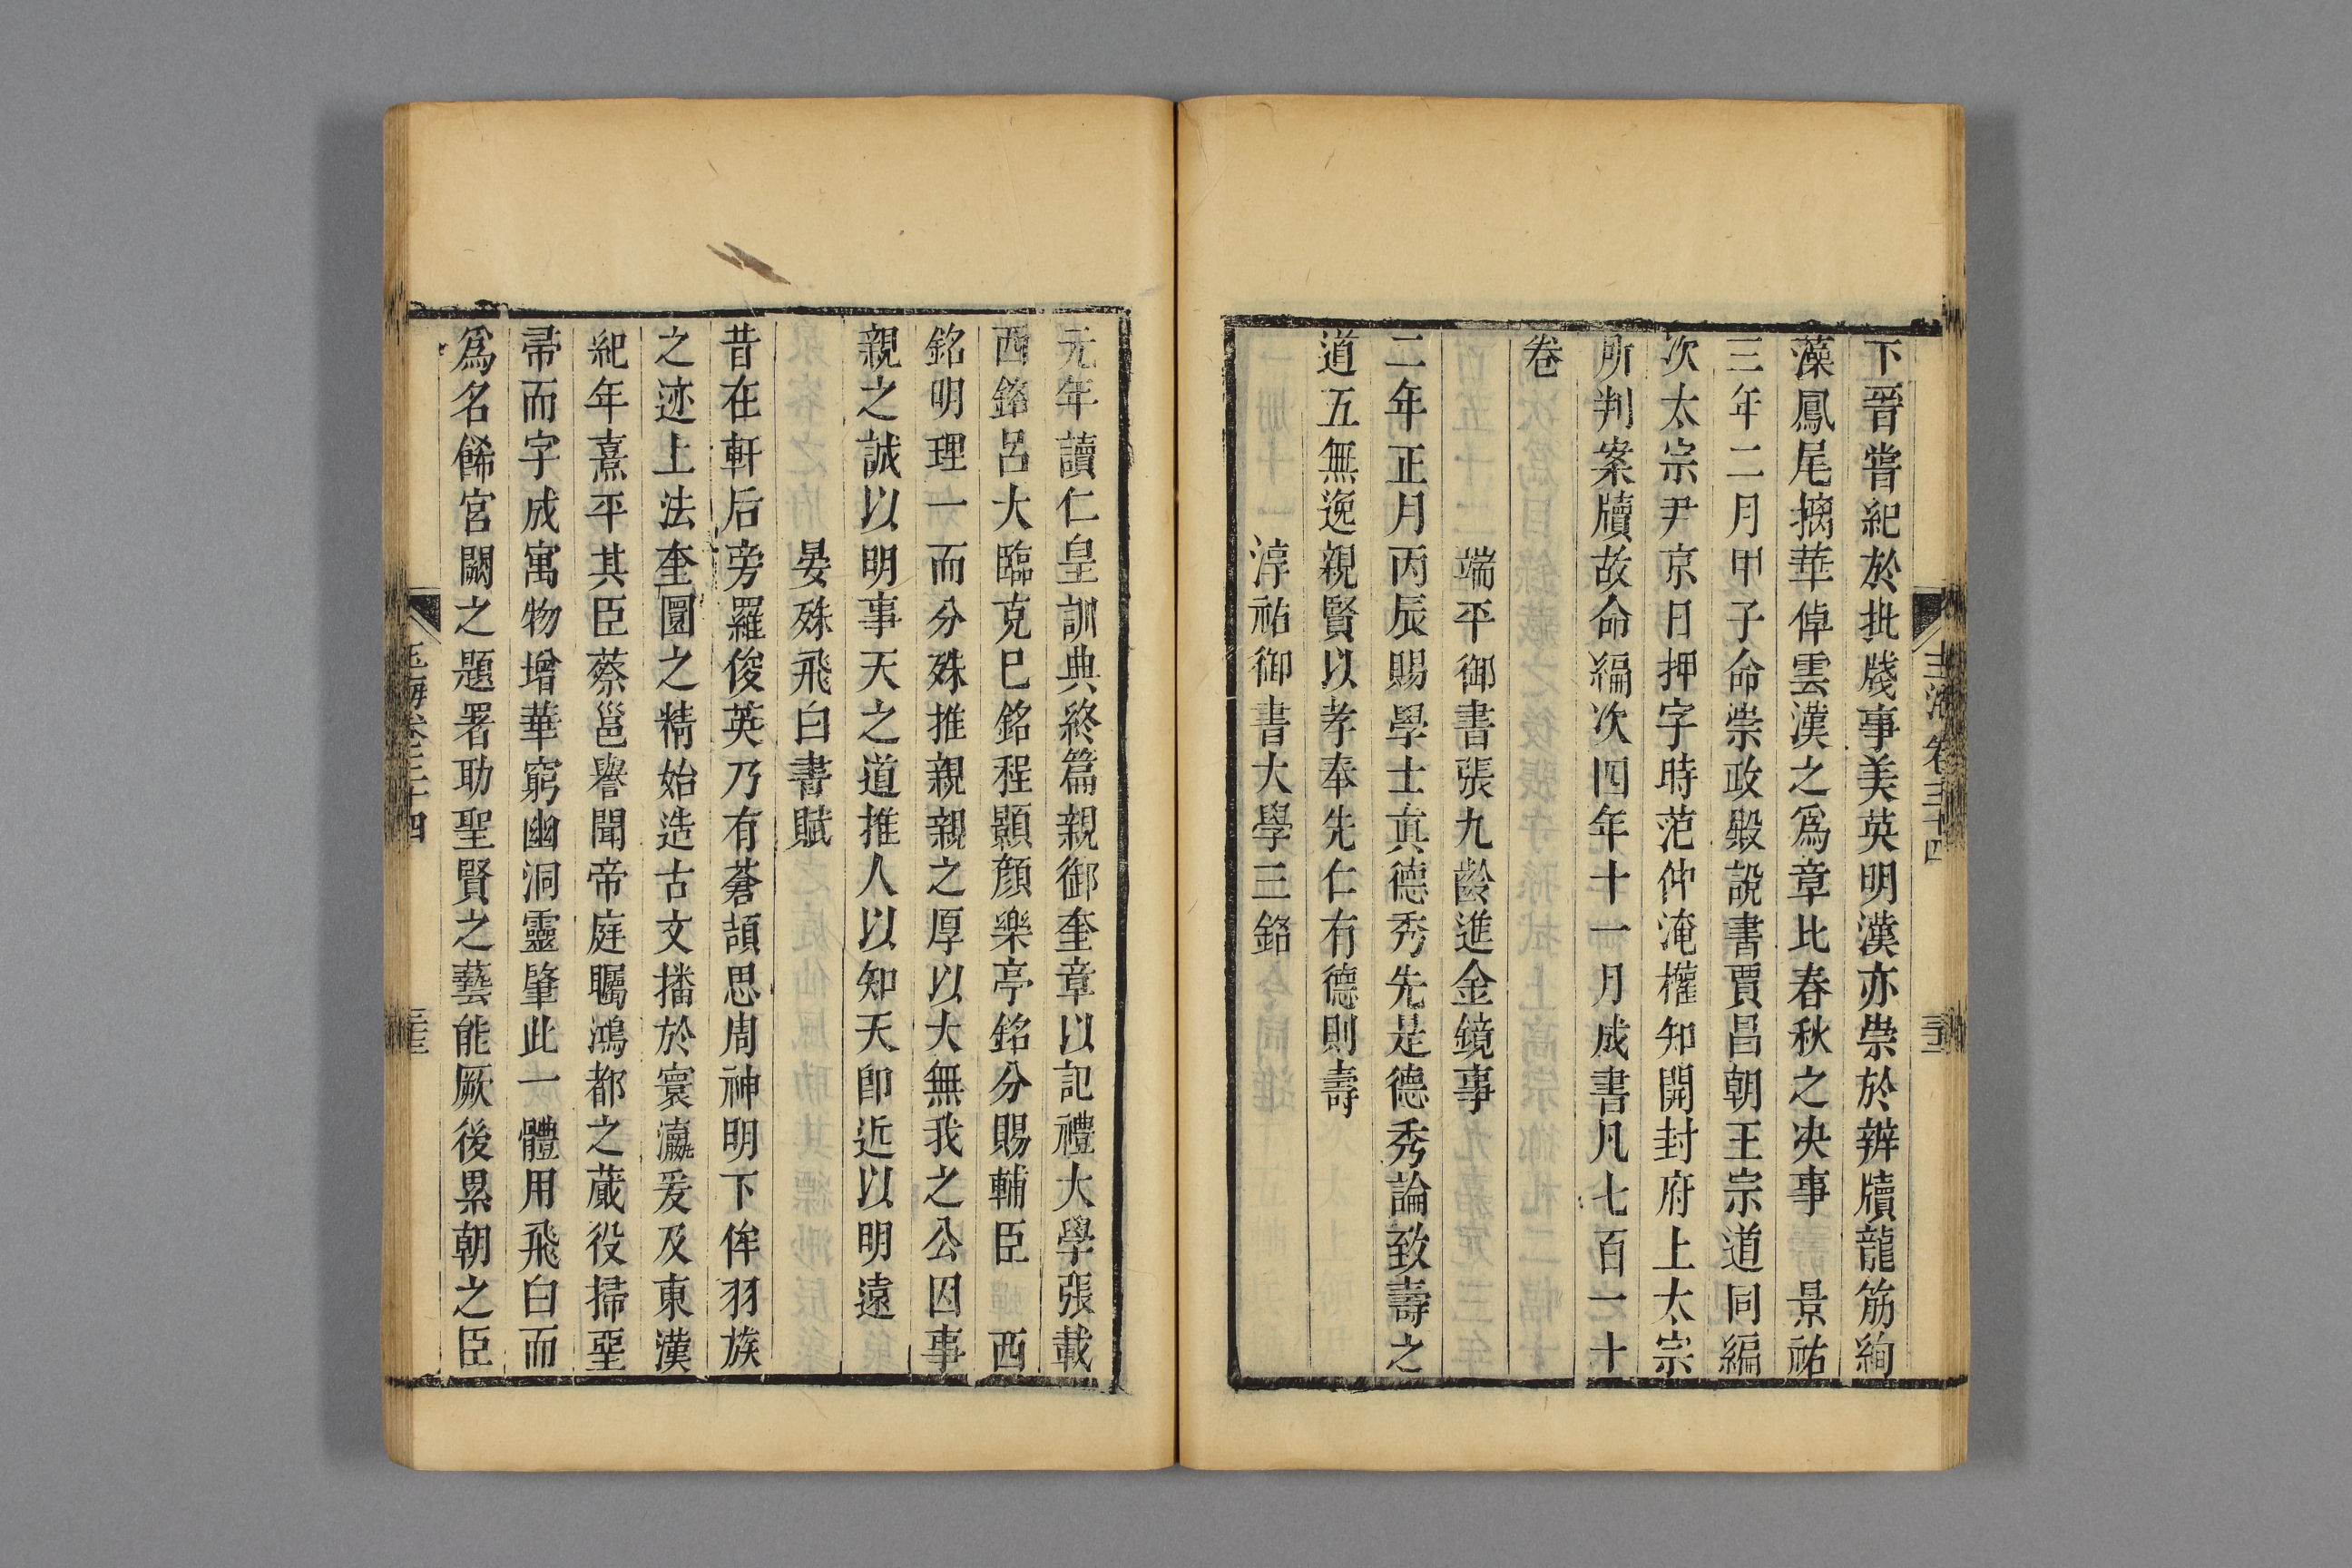 下晉嘗紀於批牋事美英明漢亦崇於辨牘龍筋絢
藻鳳尾摛華倬雲漢之爲章比春秋之决事　景祐
三年二月甲子命崇政殿說書賈昌朝王宗道同編
次太宗尹京日押字時范仲淹權知開封府上太宗
所判案牘故命編次四年十一月成書凡七百一十
卷
端平御書張九齡進金鏡事
二年正月丙辰賜學士真德秀先是德秀論致壽之
道五無逸親賢以孝奉先仁有德則壽
淳祐御書大學三銘
元年讀仁皇訓典終篇親御奎章以記禮大學張載
西銘呂大臨克巳銘程顥顏樂亭銘分賜輔臣　西
銘明理一而分殊推親親之厚以大無我之公因事
親之誠以明事天之道推人以知天卽近以明遠
晏殊飛白書賦
昔在軒后旁羅俊英乃有蒼頡思周神明下侔羽族
之迹上法奎圜之精始造古文播於寰瀛爰及東漢
紀年熹平其臣蔡邕譽聞帝庭矚鴻都之蕆役掃堊
帚而字成寓物增華窮幽洞靈肇此一體用飛白而
爲名餙宮闕之題署助聖賢之藝能厥後累朝之臣
玉海卷三十四